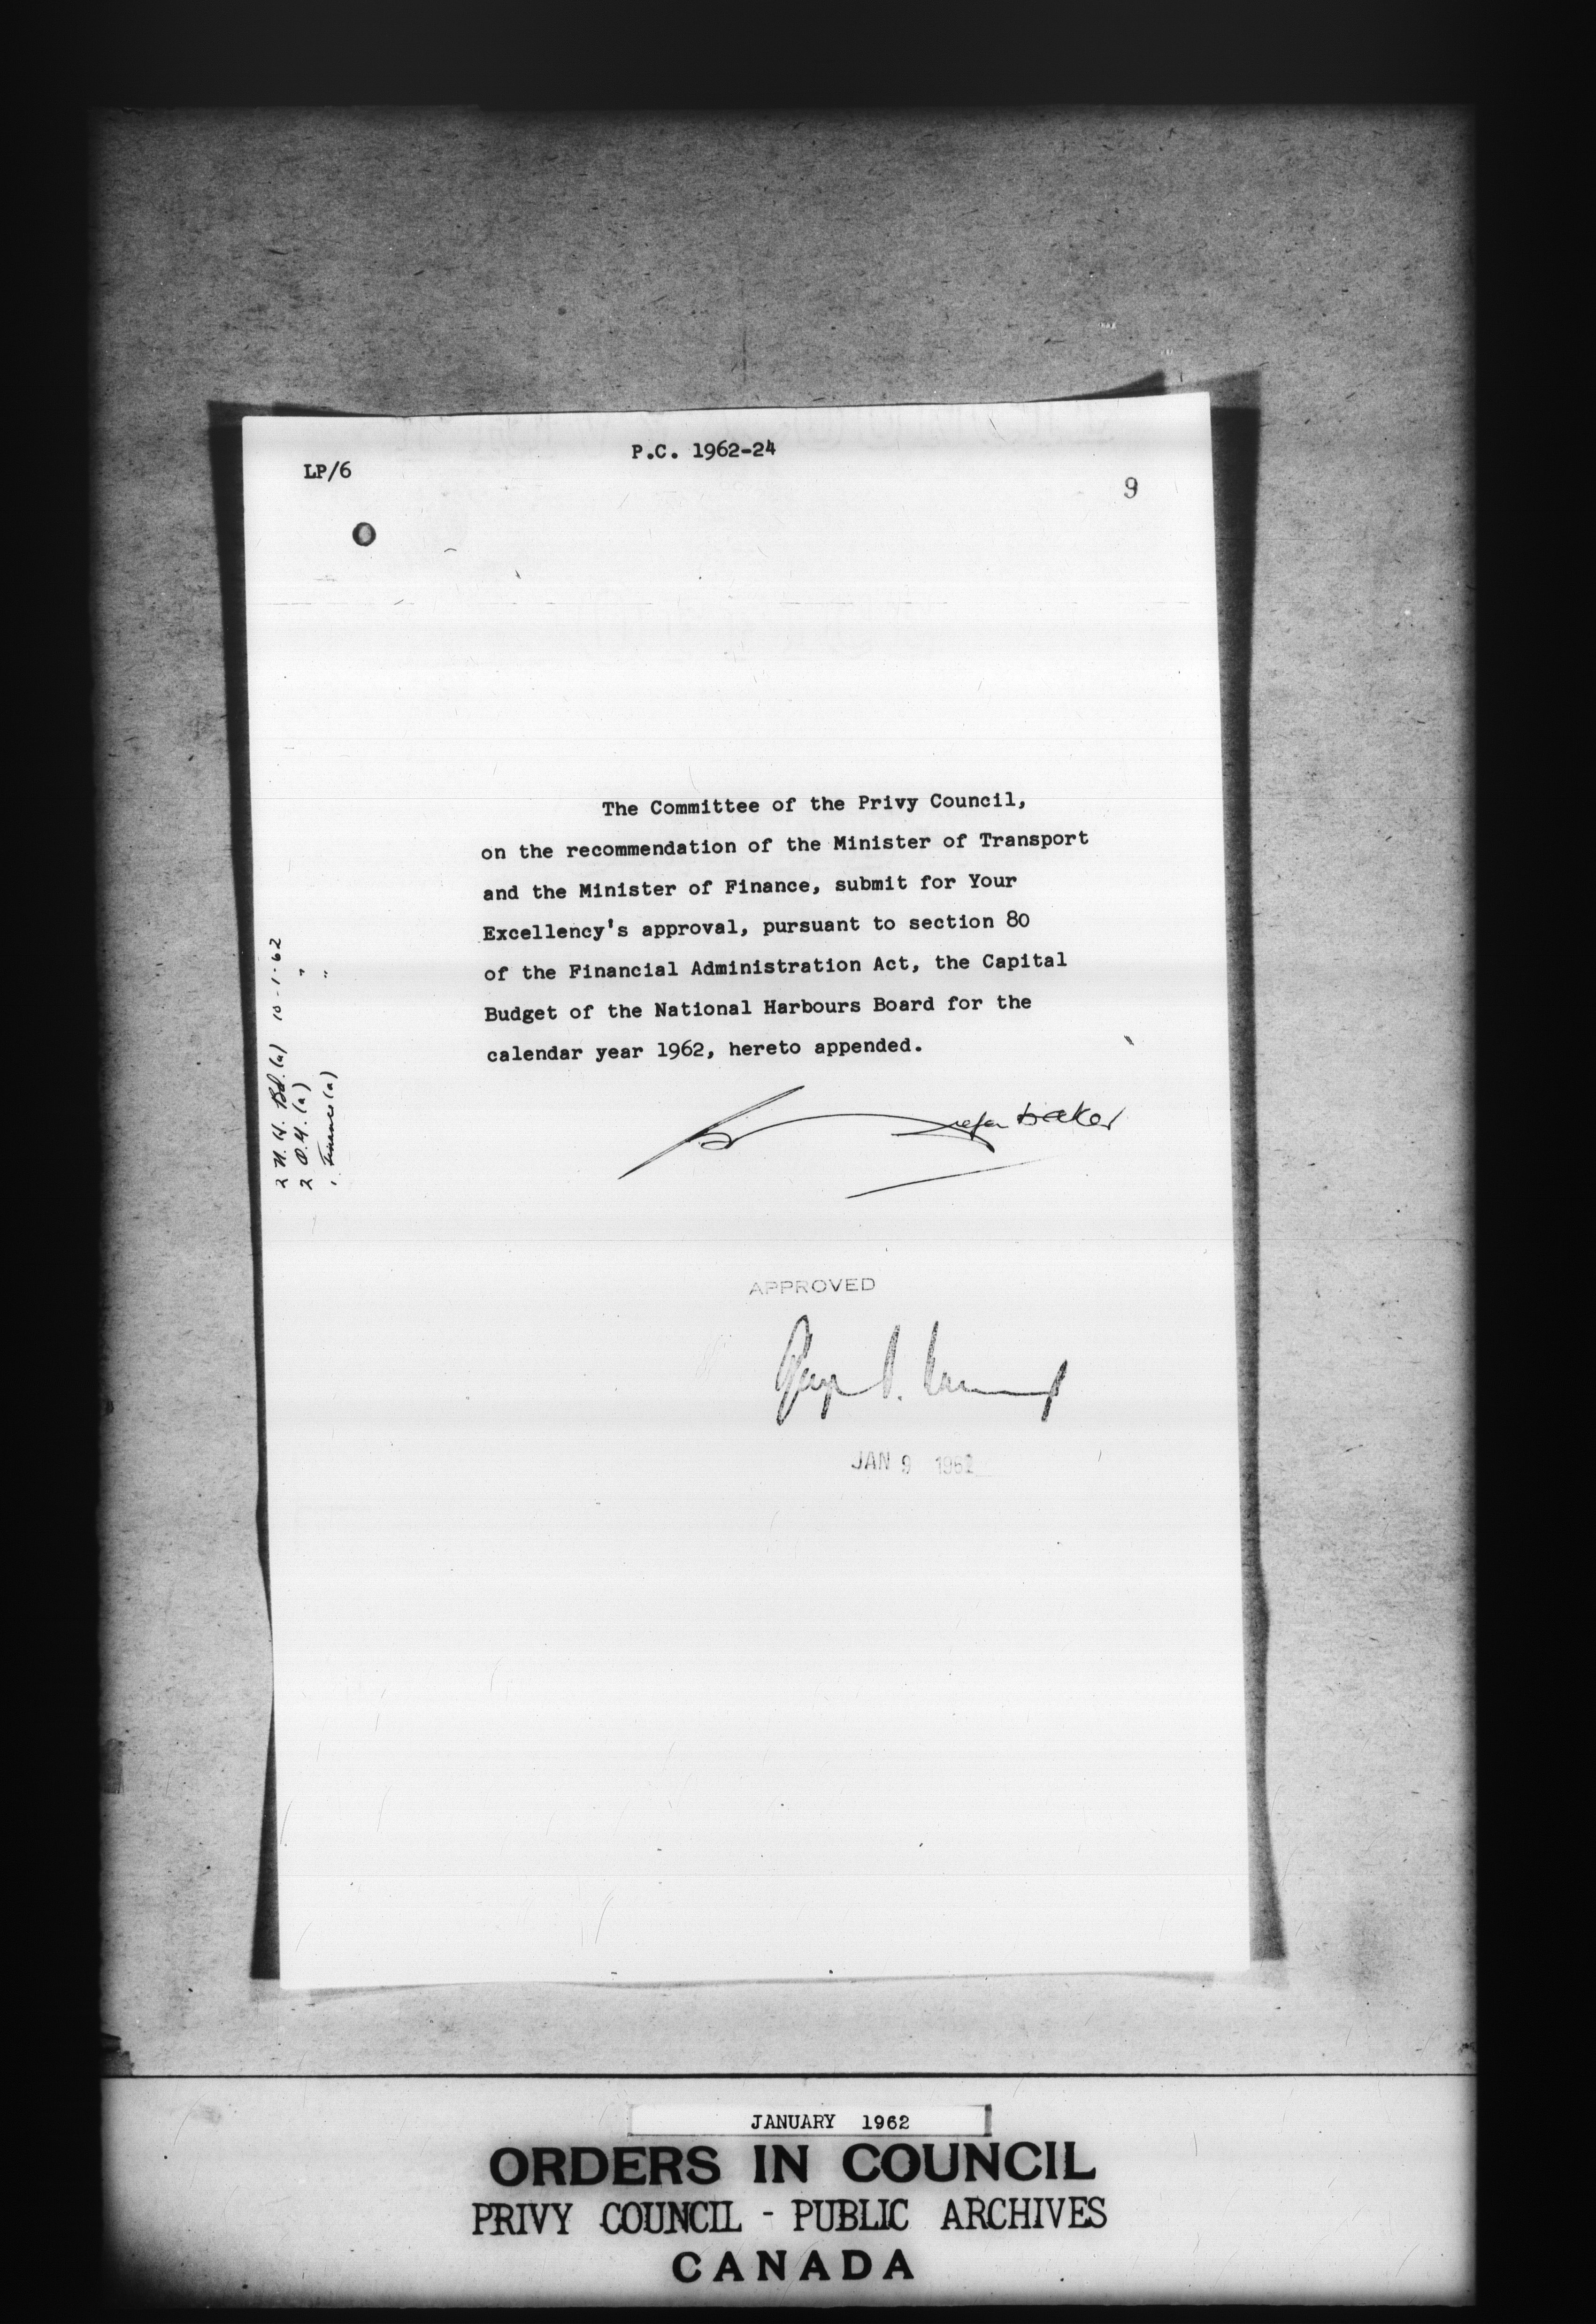 P.C. 1962-24
LP/6
9
The Committee of the Privy Council,
on the recommendation of the Minister of Transport
and the Minister of Finance, submit for Your
Excellency's approval, pursuant to section 80
of the Financial Administration Act, the Capital
Budget of the National Harbours Board for the
calendar year 1962, hereto appended.
2 N. H. Bd. (a) 10-1-62
2 (a) "
1 Finance (a) "
APPROVED
JAN 9 1962
JANUARY 1962
ORDERS IN COUNCIL
PRIVY COUNCIL - PUBLIC ARCHIVES
CANADA